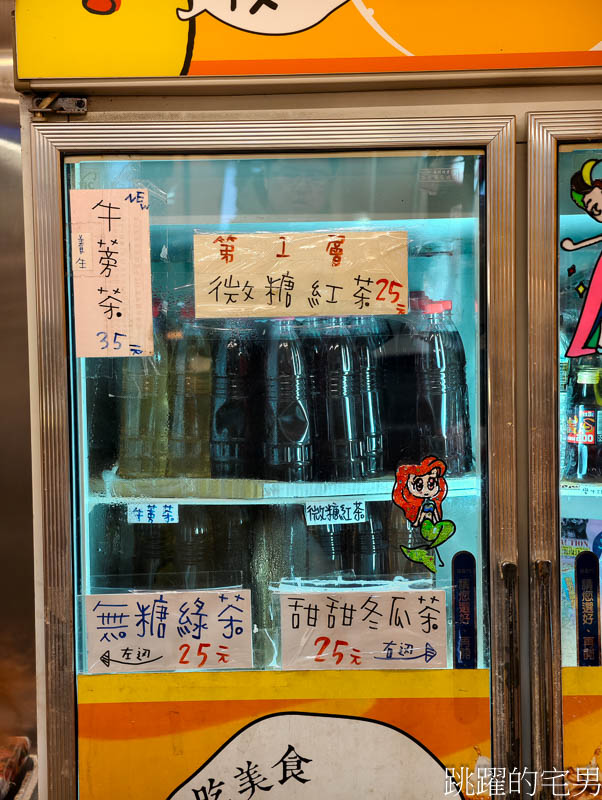 NEW
養生
牛蒡茶
35元
第1層
微糖紅茶25元
牛蒡茶
微糖紅茶
無糖綠茶
左边 25元
甜甜冬瓜茶
25元 右边
請您選好、再開
200
ACTION
吃美食
跳躍的宅男